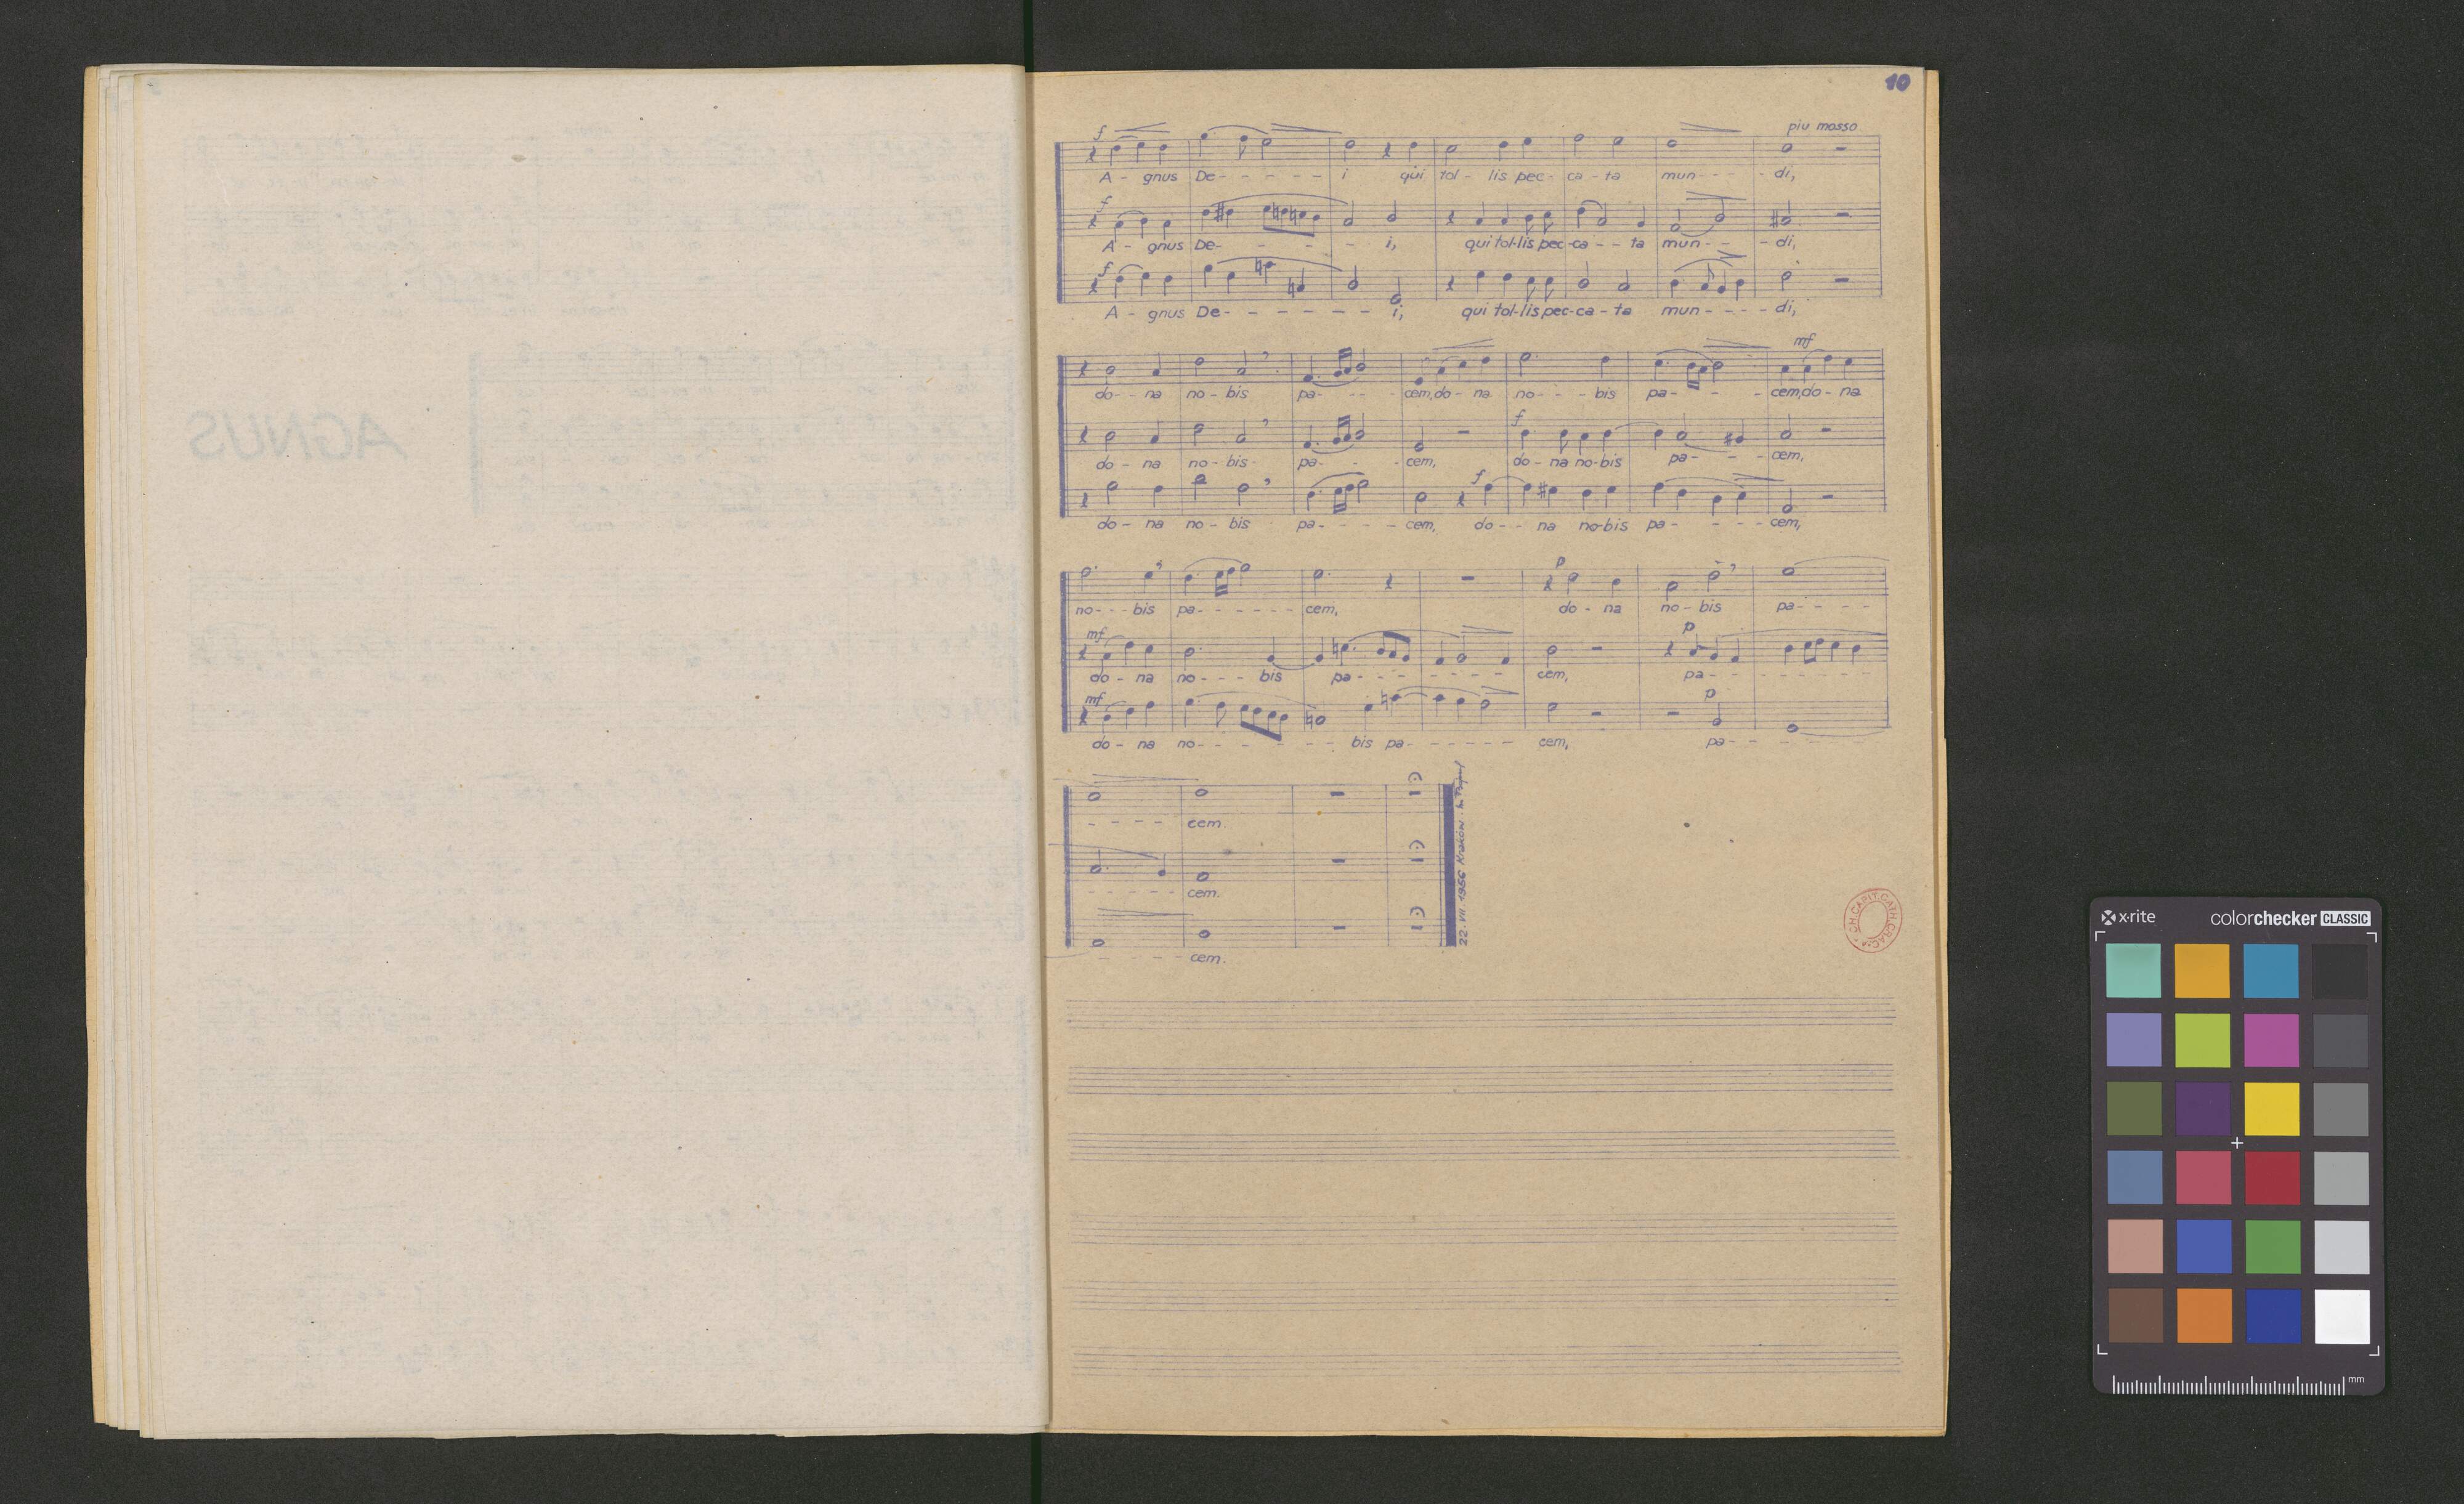 AGNUS
10
f
piu mosso
A - gnus De - - - - - i qui tol - lis pec - ca - ta mun - - - - di,
f
A - gnus De - - - - i, qui tol-lis pec-ca - - ta mun - - - di,
f
A - gnus De - - - - - - - i, qui tol-lis pec-ca - ta mun - - - - di,
mf
do - - na no - bis pa - - - - cem, do - na no - - - bis pa - - - - cem, do - na
f
do - na no - bis - pa - - - cem, do - na no-bis pa - - - cem,
f
do - na no - bis pa - - - - cem, do - - na no-bis pa - - - - cem,
p
no - - - bis pa - - - - - - cem, do - na no - bis pa - - - -
mf
p
do - na no - - - bis pa - - - - - - - cem, pa - - - - - - -
mf
p
do - na no - - - - - - - bis pa - - - - - - cem, pa - - -
- - - - cem.
- - - - - cem.
- - - - cem.
22. VII. 1956 Kraków.
CH. CAPIT. CATH. CRAC.
x-rite
colorchecker CLASSIC
mm